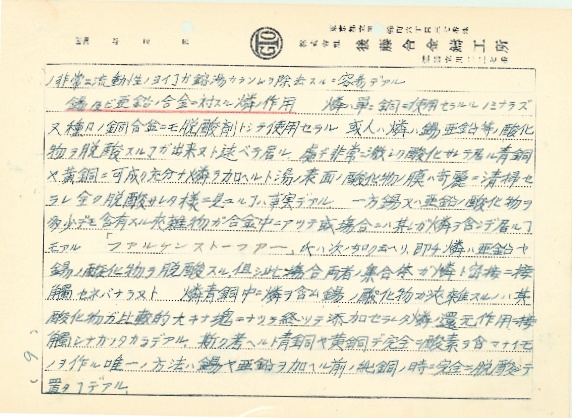 GTO
株式会社 後藤合金鋳工所
ノ非常ニ流動性ノヨイノガ鎔湯カラ除去スルニ容易デアル
錫及ビ亜鉛ノ合金ニ対スル燐ノ作用 燐ハ単ニ銅ニ使用セラルルノミナラズ
又種ロノ銅合金ニモ脱酸剤トシテ使用セラル 或人ハ燐ハ錫亜鉛等ノ酸化
物ヲ脱酸スル事ガ出来ヌト述ベテ居ル 処デ非常ニ激シク酸化サレテ居ル青銅
又黄銅ニ可成リ充分ナ燐ヲ加ヘルト湯ノ表面ノ酸化物ノ膜ハ奇麗ニ清掃セ
ラレ全ク脱酸サレタ様ニ見エルノハ事実デアル 一方錫又ハ亜鉛ノ酸化物ヲ
多少デモ含有スル夾雑物ガ合金中ニアツテ或場合ニハ某ガ燐ヲ含ンデ居ル事
モアル 「ファルケンストーファー」此ハ次ノ如ク云ヘリ、即チ燐ハ亜鉛ヤ
錫ノ酸化物ヲ脱酸スル但シ此ノ場合両者ノ集合体ガ燐ト密接ニ接
触セネバナラヌト 燐青銅中ニ燐ヲ含ム錫ノ酸化物ガ夾雑スルノハ其
酸化物ガ比較的大キナ塊ニナツテ終ツテ添加セラレタ燐ノ還元作用ニ接
触シナカツタカラデアル、斯ク考ヘルト青銅ヤ黄銅デ完全ニ酸素ヲ含マナイモ
ノヲ作ル唯一ノ方法ハ錫ヤ亜鉛ヲ加ヘル前ノ純銅ノ時ニ完全ニ脱酸シテ
置ク事デアル
(6)